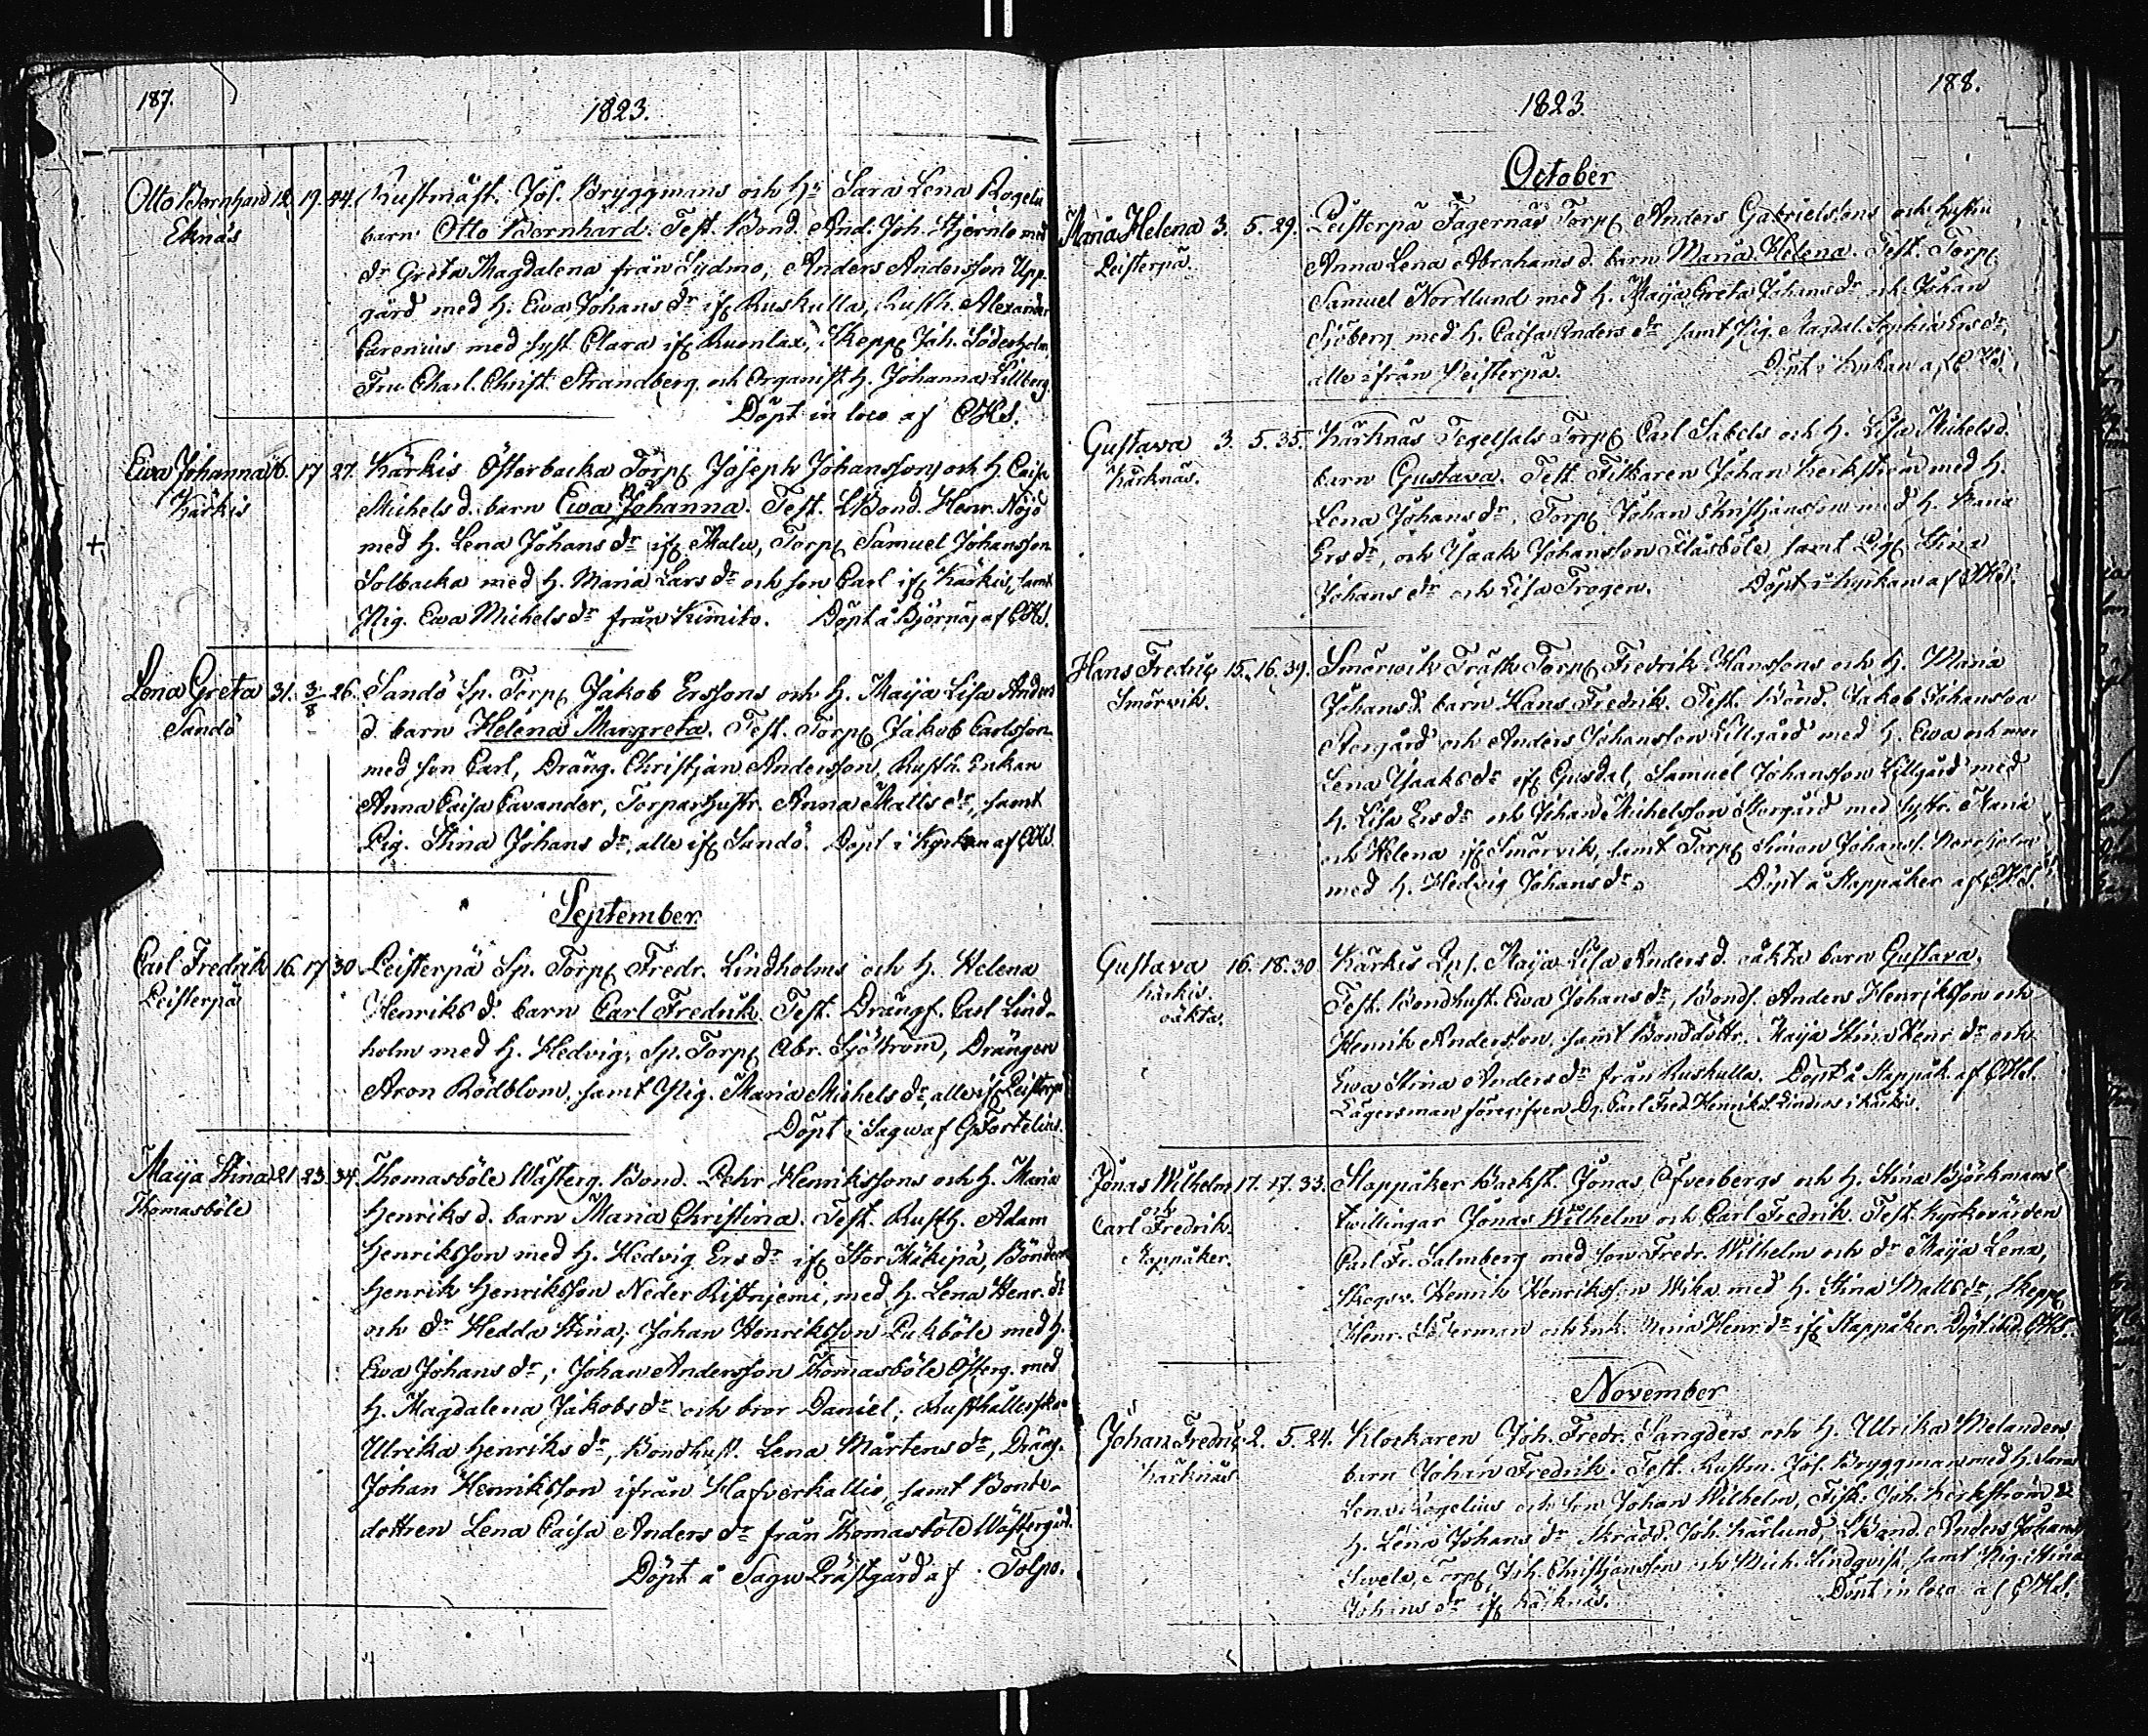 187.
1823.
Otto Bernhard 12. 19. 44. Rustmäst. Jos. Bryggmans och H:u Sara Lena Rogelii
Eknäs
barn Otto Bernhard. Test. Bond. And. Joh. Stjernlo med
dr Greta Magdalena från Sydmo, Anders Andersson Upp-
gård med h. Ewa Johans dr ifr Ruskulla, Rusth. Alexander
Carenius med syst. Clara ifr Ruonlax, Skepp. Joh. Söderholm
Fru Charl. Christ. Strandberg och Organist h. Johanna Lillberg
Döpt in loco af CHS.
Ewa Johanna 16. 17 27. Kärkis Österbacka Torp. Joseph Johanssons och h. Caisa
Kärkis
Michels d. barn Ewa Johanna. Test. LBond. Henr. Nöjd
med h. Lena Johans dr ifr Malu, Torp. Samuel Johansson
Solbacka med h. Maria Lars dr och son Carl ifr Kärkis, samt
Pig. Ewa Michels dr från Kimito. Döpt å Björnäs af CHS.
Lena Greta 31. 3/8 26. Sandö Sp. Torp. Jakob Erssons och h. Maija Lisa Anders
Sandö
d. barn Helena Margreta. Test. Torp. Jakob Carlsson
med son Carl, Dräng. Christjan Andersson, Rusth. Enkan
Anna Caisa Cavander, Torparhustr. Anna Matts dr, samt
Pig. Stina Johans dr, alle ifr Sandö. Döpt i Kyrkan af CHS.
September
Carl Fredrik 16. 17 30 Leisterpä Sp. Torp. Fredr. Lindholms och h. Helena
Leisterpä
Henriks d. barn Carl Fredrik. Test. Drängs. Carl Lind-
holm med h. Hedvig, Sp. Torp. Abr. Sjöström, Drängen
Aron Rödblom, samt Pig. Maria Michels dr, alle ifr Leisterpä
Döpt i Sagu af G Fortelius.
Maija Stina 21 23. 34. Thomasböle Wästerg. Bond. Pehr Henrikssons och h. Maria
Thomasböle
Henriks d. barn Maria Christina. Test. Rusth. Adam
Henriksson med h. Hedvig Ers dr ifr Stor Mäkipä, Bönderne
Henrik Henriksson Neder Ristniemi, med h. Lena Henr. dr
och dr Hedda Stina; Johan Henriksson Pukböle med h.
Ewa Johans dr; Johan Andersson Thomasböle Österg. med
h. Magdalena Jakobs dr och bror Daniel; Rusthållerskan
Ulrika Henriks dr, Bondhust. Lena Mårtens dr, Dräng.
Johan Henriksson ifrån Hafverkallio, samt Bonde-
dottren Lena Caisa Anders dr från Thomasböle Wästergård.
Döpt å Sagu Prästgård af Tolpo.
188.
1823
October
Maria Helena 3. 5. 29. Leisterpä Fagernäs Torp. Anders Gabrielssons och hustru
Leisterpä.
Anna Lena Abrahams d. barn Maria Helena. Test. Torp.
Samuel Nordlund med h. Maija Greta Johans dr och Johan
Sjöberg med h. Caisa Anders dr samt Pig. Magdal. Sophia Ers dr,
alle ifrån Leisterpä. Döpt i Kyrkan af CHS.
Gustava 3. 5. 35. Kärknäs Tegelsals Torp. Carl Sabels och h. Lisa Michels d.
Kärknäs.
barn Gustava. Test. Fiskaren Johan Kerkström med h.
Lena Johans dr, Torp. Johan Christjansson med h. Maria
Ers dr, och Isaak Johansson Flasböle, samt Pig. Stina
Johans dr och Lisa Trogen. Döpt i Kyrkan af CHS.
Hans Fredric 15. 16. 39. Smörwik Träsk Torp. Fredrik Hanssons och h. Maria
Smörvik.
Johans d. barn Hans Fredrik. Test. Bönd. Jakob Johansson
Storgård och Anders Johansson Lillgård med h. Ewa och mor
Lena Isaaks dr ifr Gusdal, Samuel Johansson Lillgård med
h. Lisa Ers dr och Johan Michelsson Storgård med systr. Maria
och Helena ifr Smörvik, samt Torp. Simon Johans. Norrholm
med h. Hedvig Johans dr. Döpt å Stappåker af CHS.
Gustava 16. 18. 30 Kärkis Maija Lisa Anders d. oäkta barn Gustava,
Kärkis.
oäkta.
Test. Bondhust. Ewa Johans dr, Bonds. Anders Henriksson och
Henrik Andersson, samt Bonddöttr. Maija Stina Henr dr och
Ewa Stina Anders dr från Ruskulla. Döpt å Stappåk. af CHS.
Lägersman föregifven Dg. Carl Fred. Henriks. Lindros i Kärkis.
Jonas Wilhelm 17. 17. 33. Stappåker Backst. Jonas Öfverbergs och h. Stina Björkmans
och
Carl Fredrik
Stappåker.
twillingar Jonas Wilhelm och Carl Fredrik. Test. Kyrkovärden
Carl Fr. Salmberg med son Fredr. Wilhelm och dr Maija Lena,
Skogsv. Henrik Henriksson Wika med h. Stina Matts dr, Skepp.
Henr. Söderman och Enk. Maria Henr. dr ifr Stappåker. Döpt ibid. CHS.
November
Johan Fredric 2. 5. 24. Klockaren Joh. Fredr. Sangders och h. Ulrika Melanders
Kärknäs
barn Johan Fredrik. Test. Rustm. Jos. Bryggman med h. Sara
Lena Rogelius och son Johan Wilhelm, Fisk. Joh. Kerkström &
h. Lena Johans dr Skrädd. Joh. Kärlund, LBond. Anders Johans.
Torp. Joh. Christjansson och Mich. Lindqvist, samt Pig. Stina
Johans dr ifr Kärknäs. Döpt in loco af CHS.